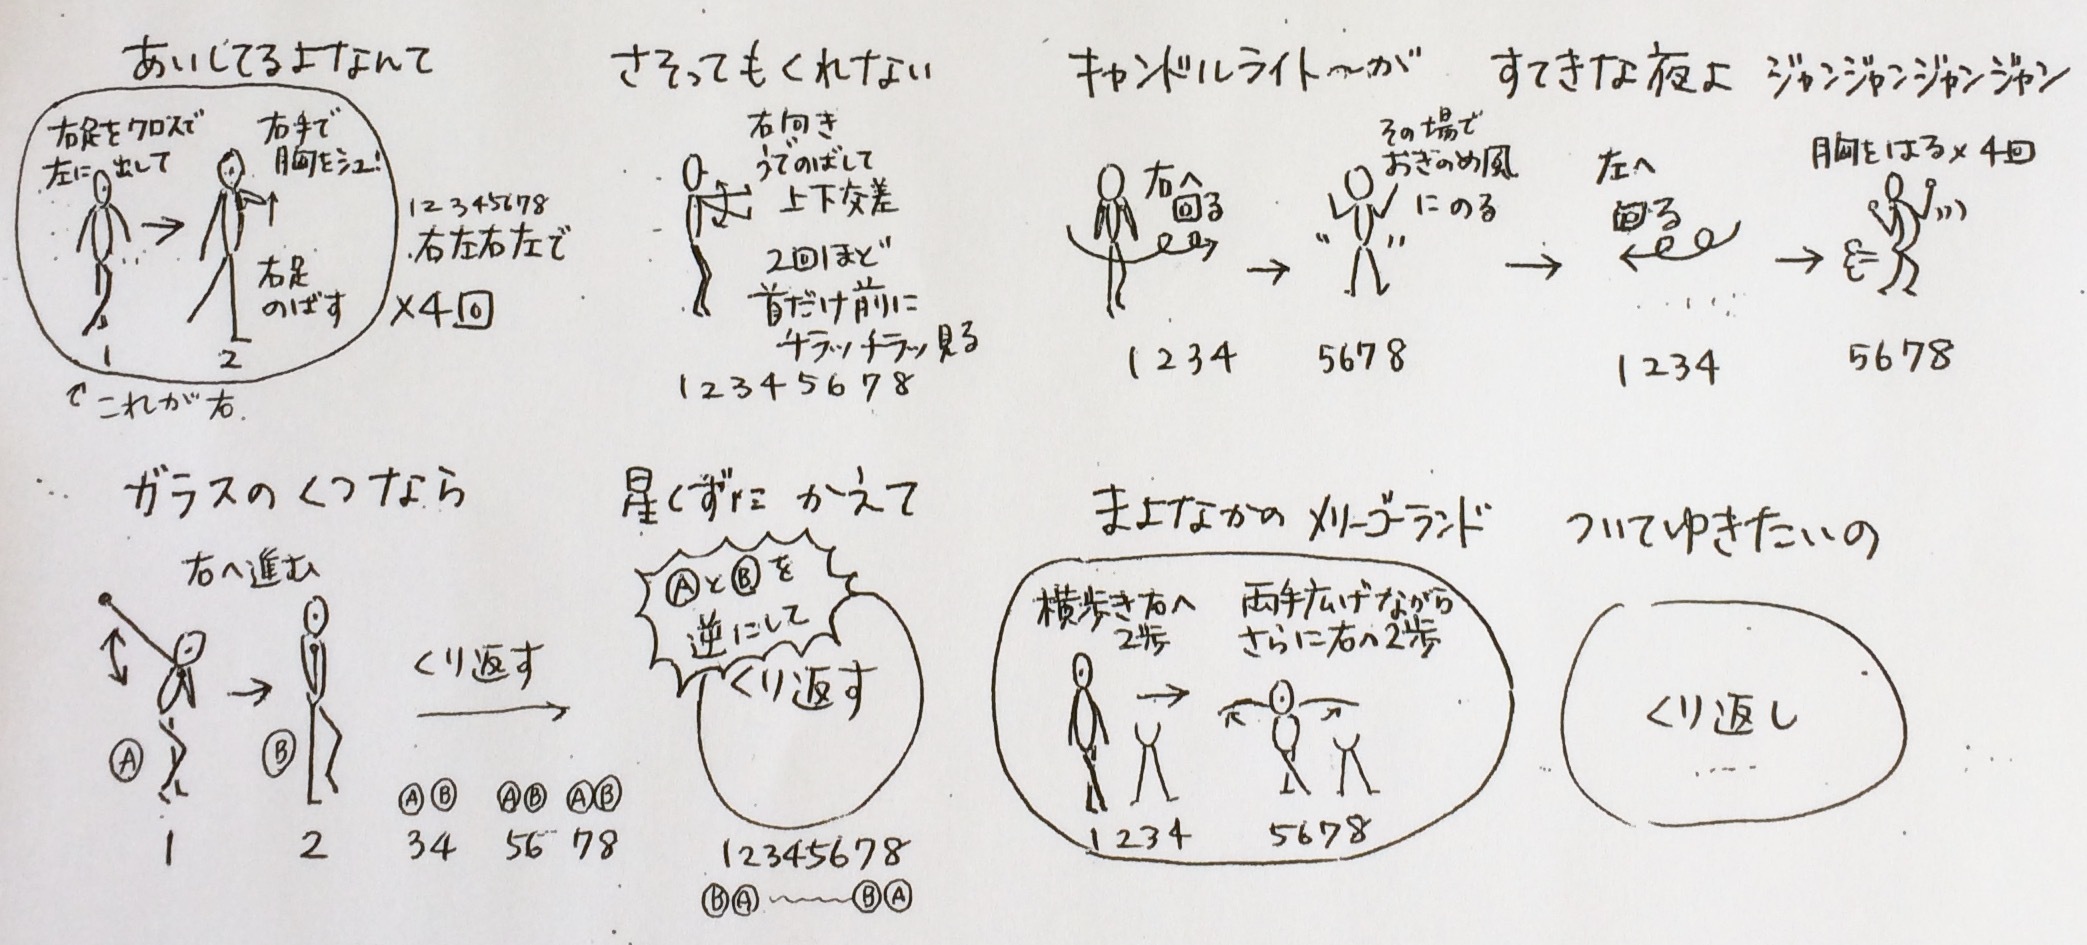 あいしてるよなんて
右足をクロスで
左に出して
右手で
胸をシュ!
右足
のばす
1 2
12345678
右左右左で
×4回
これが右
さそってもくれない
右向き
うでのばして
上下交差
2回ほど
首だけ前に
チラッチラッ見る
12345678
キャンドルライト〜が
右へ
回る
1234
その場で
おぎのめ風
にのる
5678
すてきな夜よ ジャンジャンジャンジャン
左へ
回る
1234
胸をはる×4回
5678
ガラスのくつなら
右へ進む
Ⓐ Ⓑ
くり返す
ⒶⒷ ⒶⒷ ⒶⒷ
1 2 34 56 78
星くずに かえて
ⒶとⒷを
逆にして
くり返す
12345678
ⒷⒶ〜〜〜ⒷⒶ
まよなかの メリーゴーランド
横歩き右へ
2歩
両手広げながら
さらに右へ2歩
1234 5678
ついてゆきたいの
くり返し